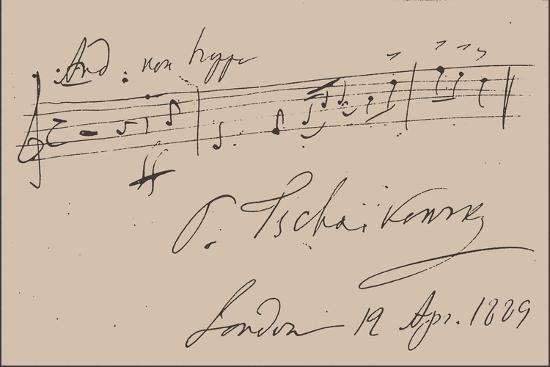 And. non troppo
ff
P. Tschaikovsky
London 12 Apr. 1889